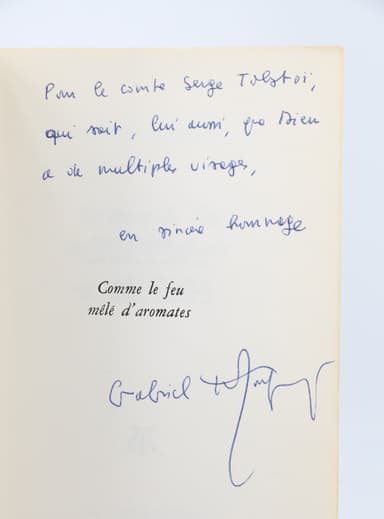 Pour le comte Serge Tolstoï,
qui sait, lui aussi, que Dieu
a de multiples visages,
en sincère hommage
Comme le feu
mêlé d'aromates
Gabriel